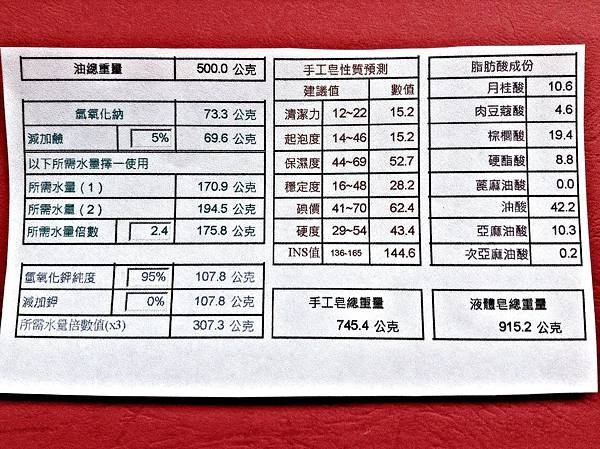 油總重量 500.0 公克
氫氧化納 73.3 公克
減加鹼 5% 69.6 公克
以下所需水量擇一使用
所需水量 (1) 170.9 公克
所需水量 (2) 194.5 公克
所需水量倍數 2.4 175.8 公克
氫氧化鉀純度 95% 107.8 公克
減加鉀 0% 107.8 公克
所需水量倍數值(x3) 307.3 公克
手工皂性質預測
建議值 數值
清潔力 12~22 15.2
起泡度 14~46 15.2
保濕度 44~69 52.7
穩定度 16~48 28.2
碘價 41~70 62.4
硬度 29~54 43.4
INS值 136-165 144.6
手工皂總重量
745.4 公克
脂肪酸成份
月桂酸 10.6
肉豆蔻酸 4.6
棕櫚酸 19.4
硬酯酸 8.8
蓖麻油酸 0.0
油酸 42.2
亞麻油酸 10.3
次亞麻油酸 0.2
液體皂總重量
915.2 公克